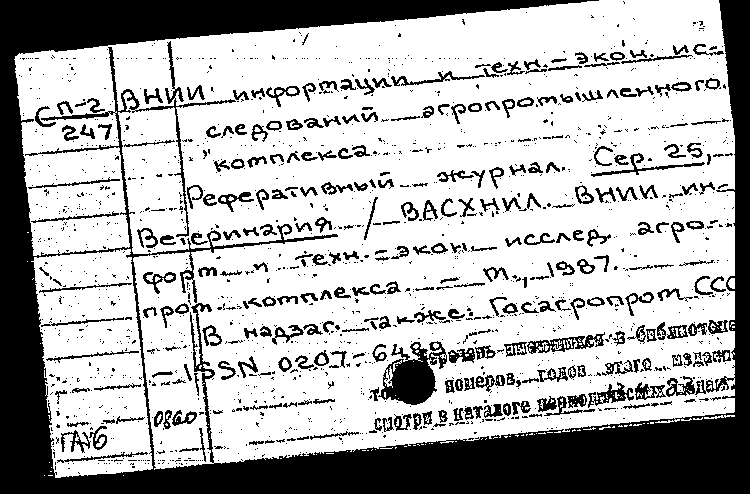 Сп-2 ВНИИ информации и техн.-экон. ис-
247 следований агропромышленного
комплекса.
Реферативный журнал. Сер. 25,
Ветеринария / ВАСХНИЛ. ВНИИ ин-
форм. и техн.-экон. исслед. агро-
пром. комплекса. - М., 1987.
В надзаг. также: Госагропром ССС
- ISSN 0207-6489
имеющихся в библиотеке
номеров, годов этого издания
смотри в каталоге периодических изданий
0860
ГАУ6